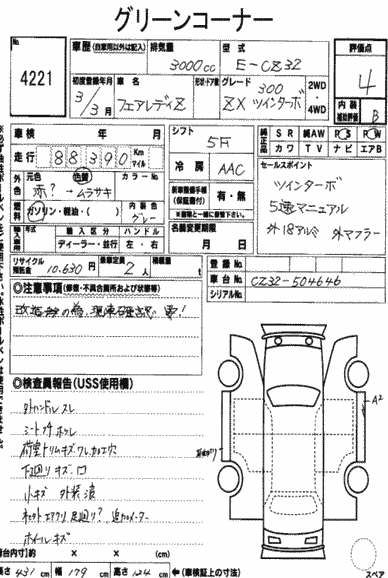 グリーンコーナー
No. 4221
車歴(自家用以外は記入) 排気量 3000cc 型式 E-CZ32
評価点 4
初度登録年月 3/3月 車名 フェアレディZ 形状・ドア数 グレード 300 ZX ツインターボ 2WD・4WD
内装補助評価 B
車検 年 月
シフト 5F
純正品 SR 純AW PS PW
カワ TV ナビ エアB
走行 88390 Km マイル
冷房 AAC
セールスポイント
外色 元色 色替 カラーNo.
赤?→ムラサキ
ツインターボ
5速マニュアル
外18アルミ 外マフラー
燃料 ガソリン・軽油・( ) 内装色 グレー
有・無
名義変更期限
月 日
輸入車 年式 輸入区分 ハンドル
ディーラー・並行 左・右
リサイクル預託金 10,630円 乗車定員 2人 積載量 t
登録No.
車台No. CZ32-504646
シリアルNo.
◎注意事項(修復・不具合箇所および状態等)
改造車の為、現車確認
◎検査員報告(USS使用欄)
外ハンドル スレ
シートコゲ ホツレ
荷室トリムキズ ワレ 加工穴
下廻りキズ
小キズ 外装波
追加メーター
ホイールキズ
A2
(車台内寸) × × (cm)
長さ 431 cm 幅 179 cm 高さ 124 cm ←(車検証上の寸法)
スペア